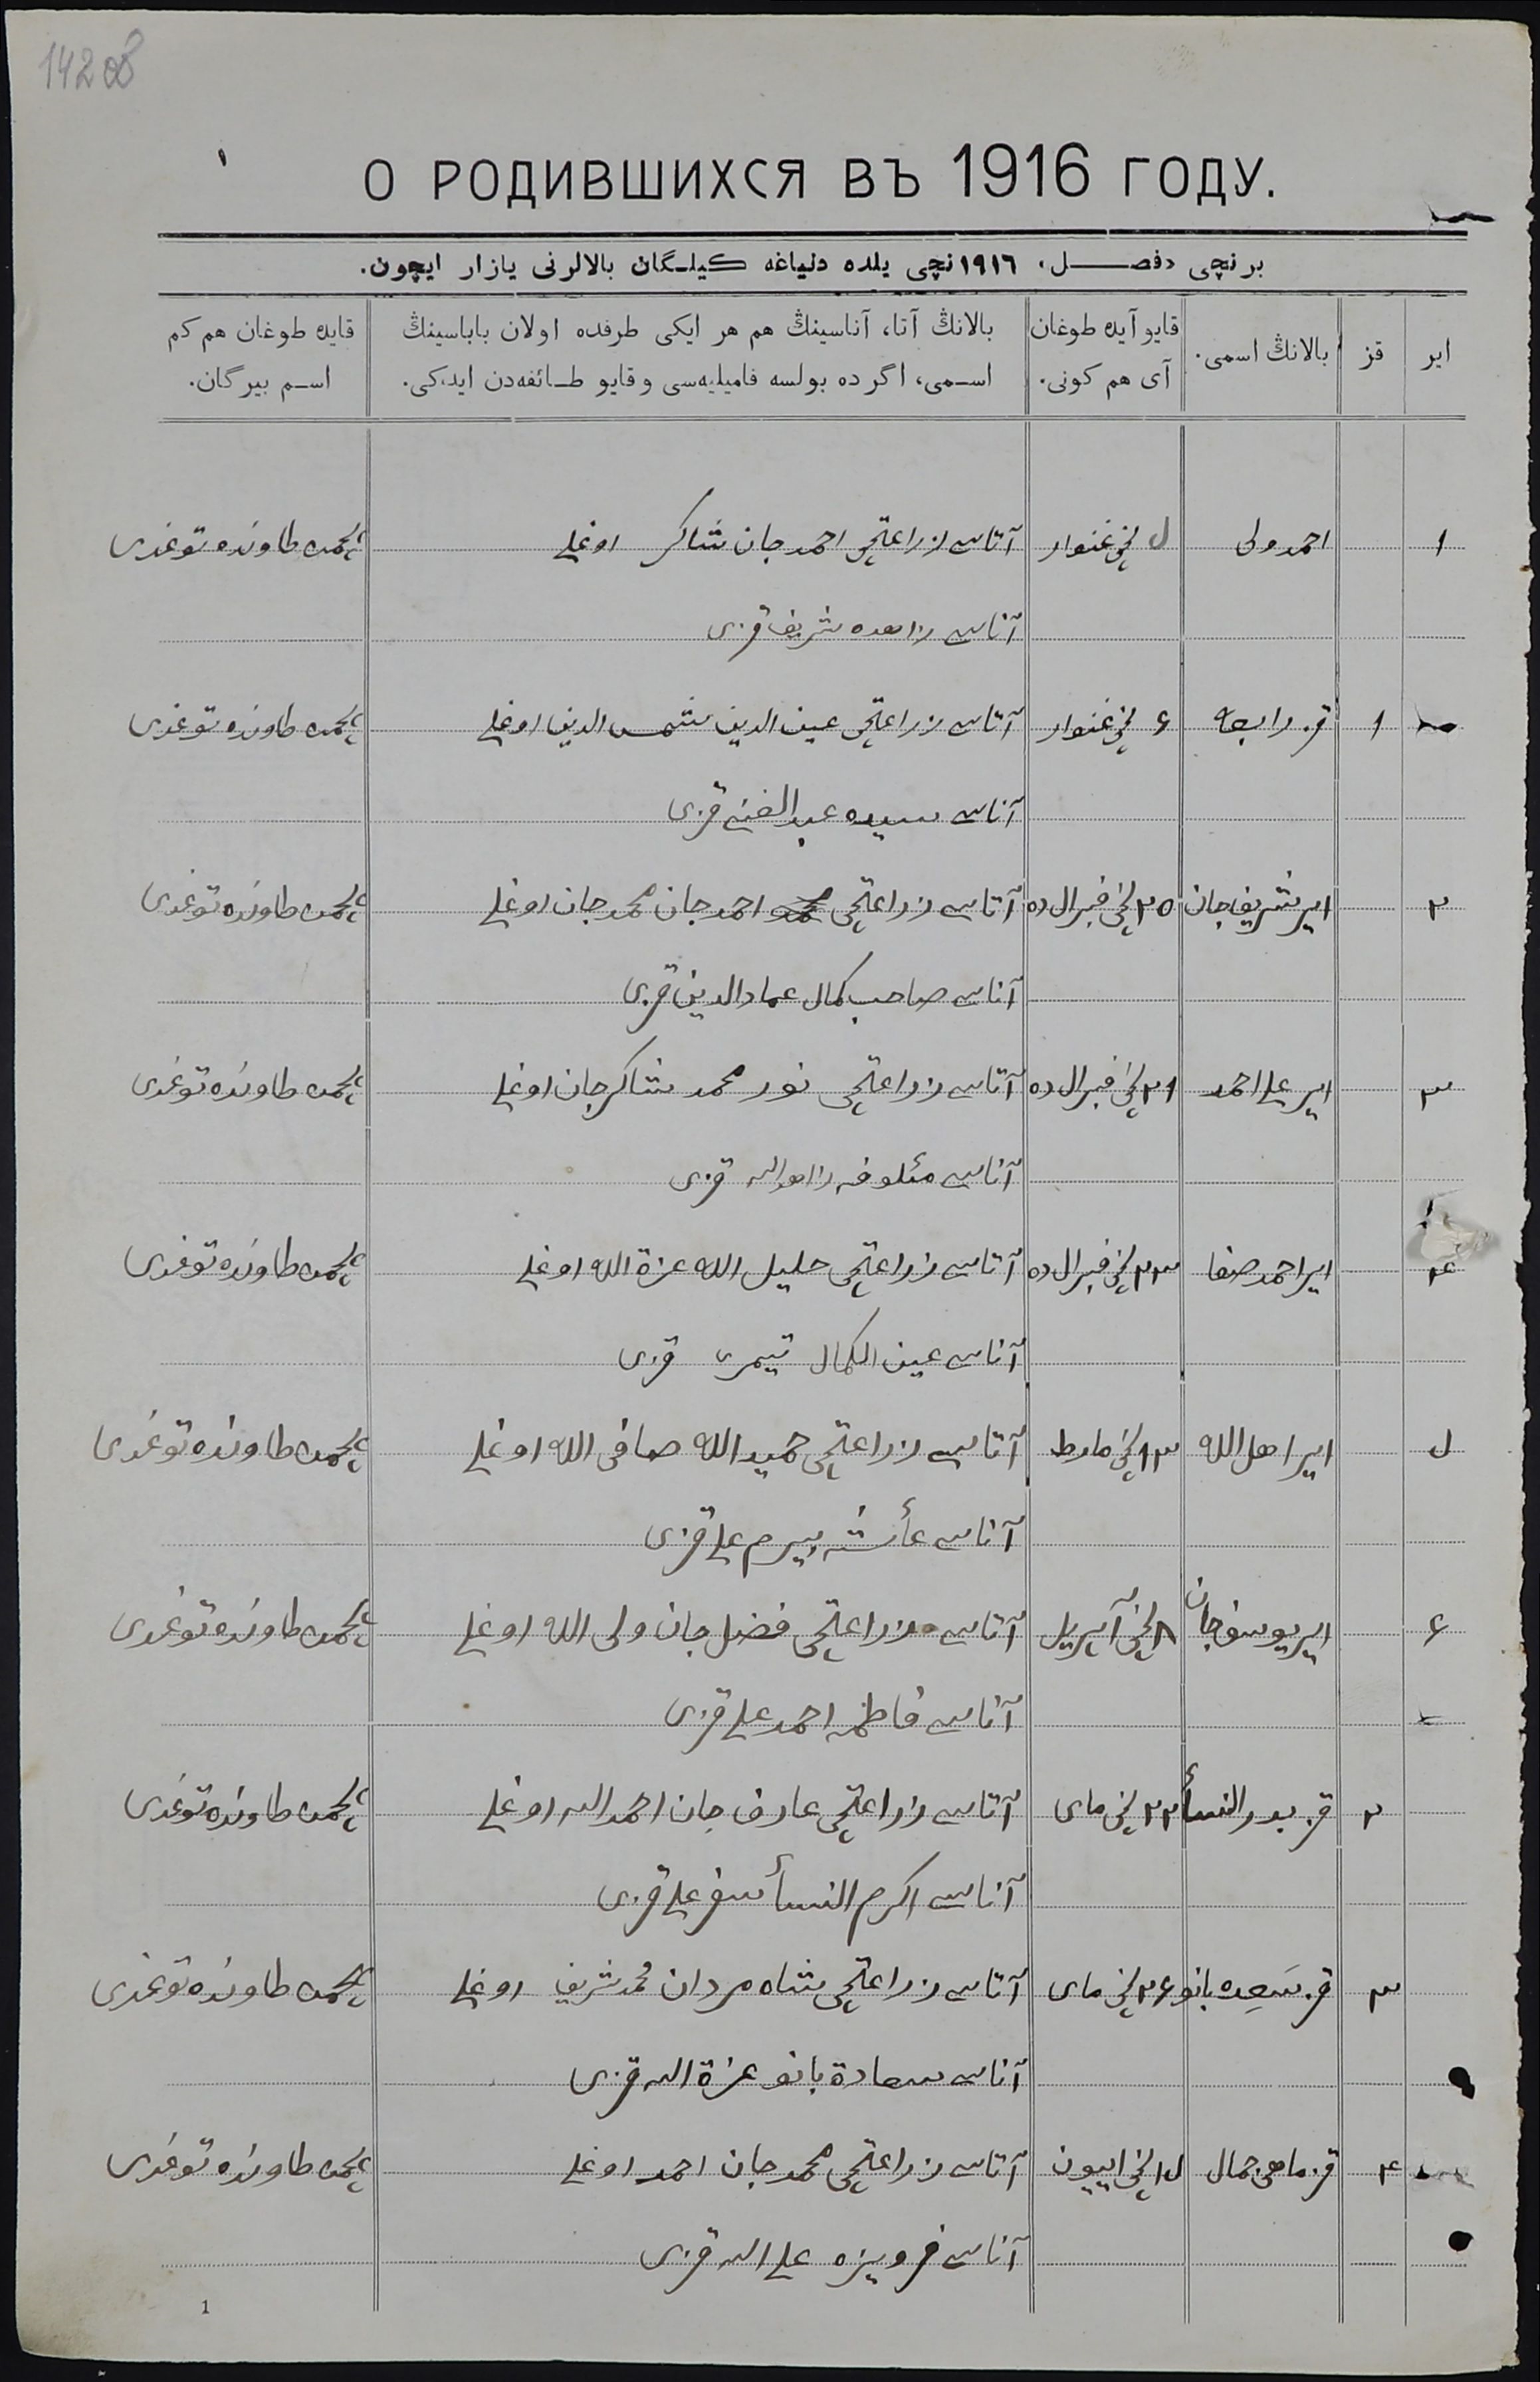 1420
О РОДИВШИХСЯ ВЪ 1916 ГОДУ.
برنچی «فصل» ١٩١٦نچی یلده دنیاغه کیلگان بالالرنی یازار ایچون.
ایر
قز
بالانڭ اسمی.
قایو آیده طوغان آی هم کونی.
بالانڭ آتا، آناسینڭ هم هر ایکی طرفده اولان باباسینڭ اسمی، اگر ده بولسه فامیلیه‌سی و قایو طائفه‌دن ایدکی.
قایده طوغان هم کم اسم بیرگان.
١ احمد ولی ل نچی غنوار آتاسی زراعتچی احمد جان شاکر اوغلی طاونده توغدی
آناسی زاهده شریف قزی
١ قز رابعه ۶ نچی غنوار آتاسی زراعتچی عین الدین شمس الدین اوغلی طاونده توغدی
آناسی سیده عبد الغنی قزی
٢ ایر شریف جان ٢٥ نچی فبرال ده آتاسی زراعتچی احمد جان محمد جان اوغلی طاونده توغدی
آناسی صاحب کمال عماد الدین قزی
٣ ایر علی احمد ٢١ نچی فبرال ده آتاسی زراعتچی نور محمد شاکر جان اوغلی طاونده توغدی
آناسی قزی
۴ ایر احمد صفا ٢٣ نچی فبرال ده آتاسی زراعتچی خلیل الله عزة الله اوغلی طاونده توغدی
آناسی عین الکمال تیمری قزی
ل ایر اهل الله ١٣ نچی مارط آتاسی زراعتچی حمید الله صافی الله اوغلی طاونده توغدی
آناسی عأشه بیرم علی قزی
۶ ایر یوسف جان ٨ نچی آپریل آتاسی زراعتچی فضل جان ولی الله اوغلی طاونده توغدی
آناسی فاطمه احمد علی قزی
٢ قز بدر النسأ ٢٢ نچی مای آتاسی زراعتچی عارف جان احمد الله اوغلی طاونده توغدی
آناسی اکرم النسأ سفر علی قزی
٣ قز سَعِده بانو ٢۶ نچی مای آتاسی زراعتچی شاه مردان محمد شریف اوغلی طاونده توغدی
آناسی سعادة بانو عزة الله قزی
۴ قز ماهی جمال ل١ نچی اییون آتاسی زراعتچی محمد جان احمد اوغلی طاونده توغدی
آناسی فرویزه علی الله قزی
1